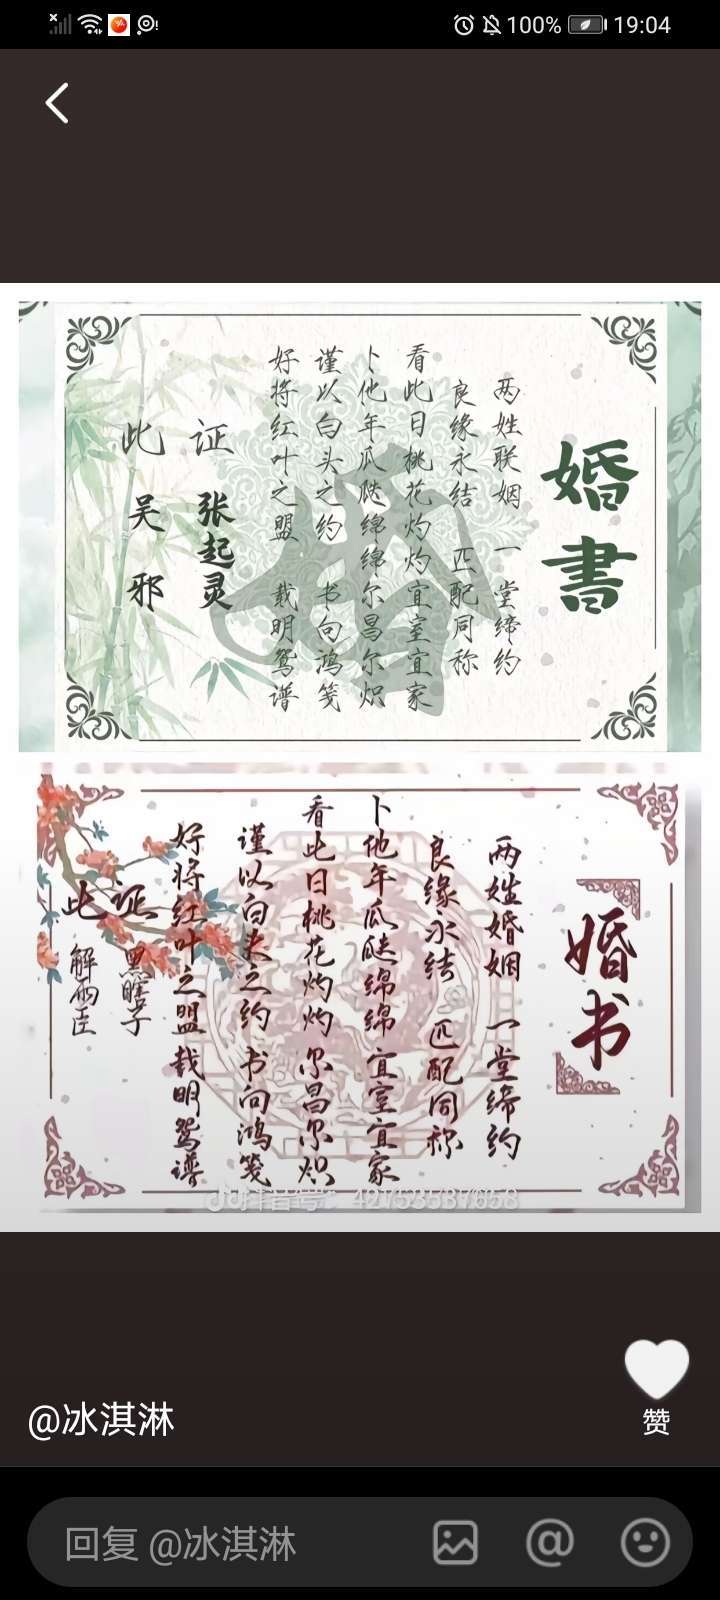 100%
19:04
婚書
两姓联姻 一堂缔约
良缘永结 匹配同称
看此日桃花灼灼宜室宜家
卜他年瓜瓞绵绵尔昌尔炽
谨以白头之约 书向鸿笺
好将红叶之盟 载明鸳谱
此证
张起灵
吴邪
婚书
两姓婚姻 一堂缔约
良缘永结 匹配同称
卜他年瓜瓞绵绵 宜室宜家
看此日桃花灼灼 尔昌尔炽
谨以白头之约 书向鸿笺
好将红叶之盟 载明鸳谱
此证
黑瞎子
解雨臣
抖音号: 42753537658
@冰淇淋
赞
回复 @冰淇淋